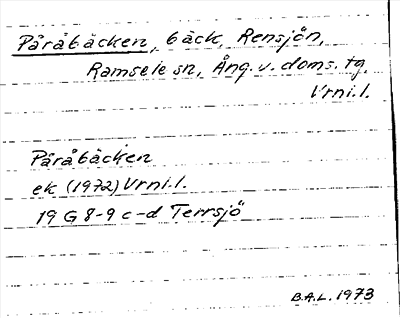 Påråbäcken, bäck, Rensjön,
Ramsele sn, Ång. v. doms. tg.
Vrni.l.
Påråbäcken
ek (1972) Vrni.l.
19 G 8-9 c-d Terrsjö
B.A.L. 1973